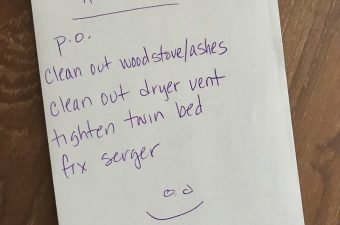 p.o.
clean out woodstove/ashes
clean out dryer vent
tighten twin bed
fix serger